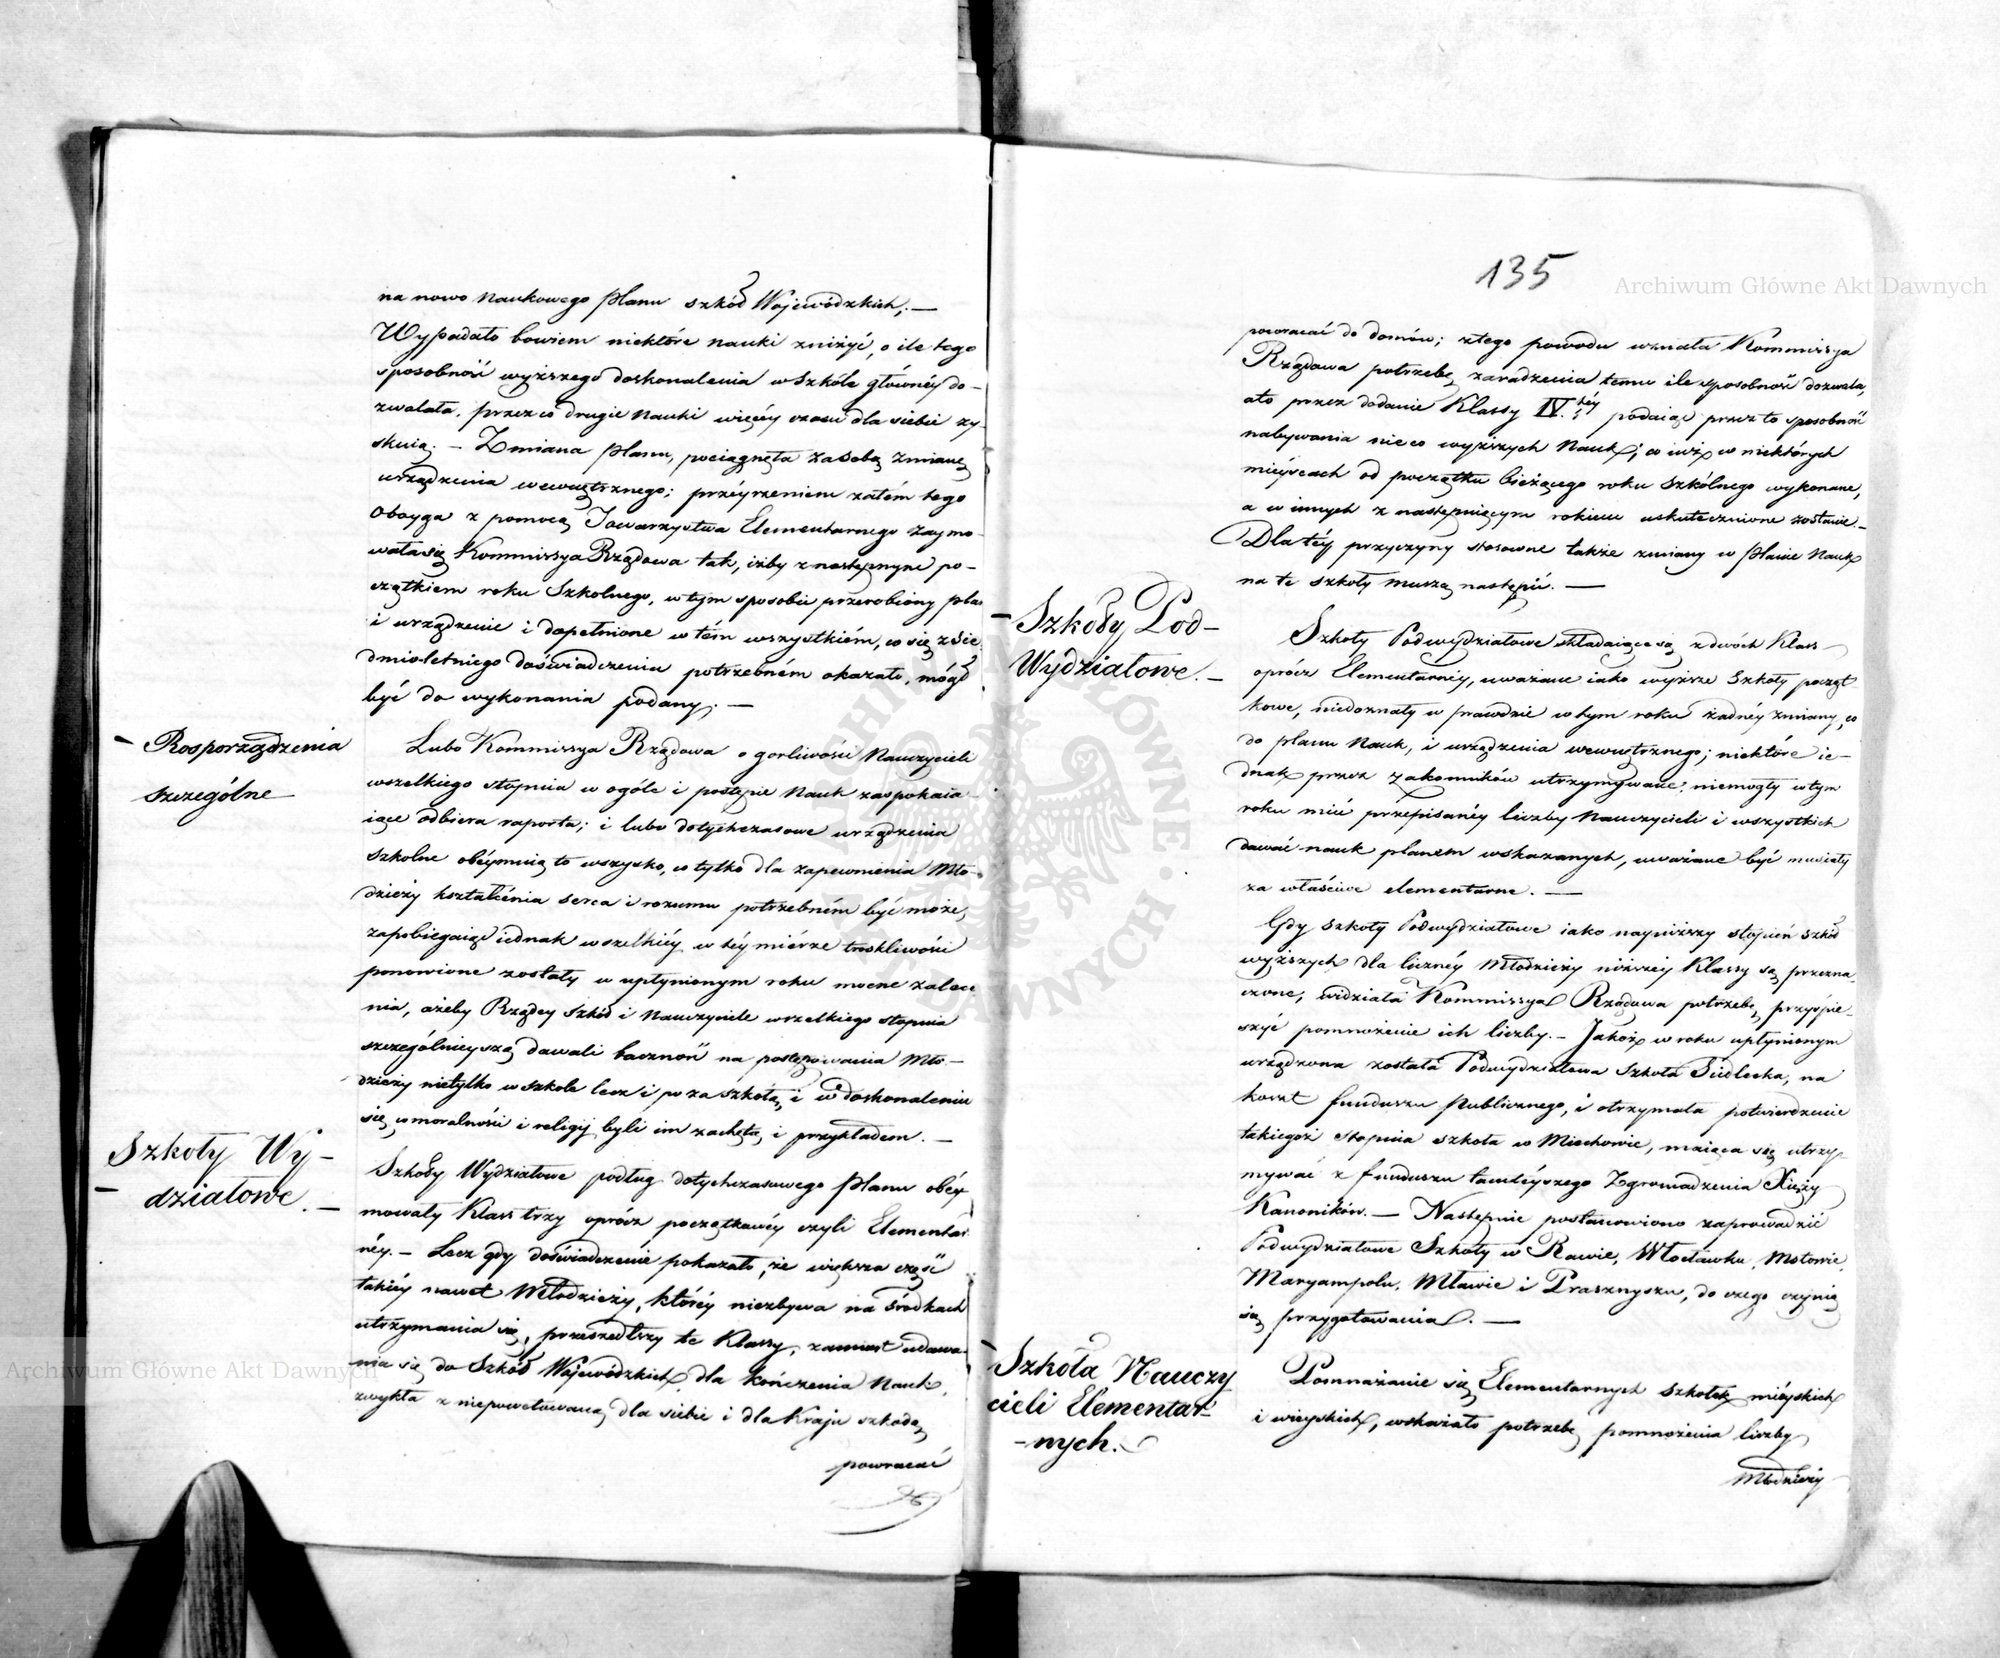 na nowo Naukowego planu szkół Wojewódzkich; —
Wypadało bowiem niektóre nauki zniżyć, o ile tego
sposobność wyższego doskonalenia w Szkole głównéy do-
zwalała, przez co drugie Nauki więcéy czasu dla siebie zy-
skuią. — Zmiana planu, pociągnęła za sobą zmianę
urządzenia wewnętrznego; przéyrzeniem zatém tego
oboyga z pomocą Towarzystwa Elementarnego zaymo-
wała się Kommissya Rządowa tak, iżby z następnym po-
czątkiem roku Szkolnego, w tym sposobie przerobiony plan
i urządzenie i dopełnione w tém wszystkiém, co się z Sie-
dmioletniego doświadczenia potrzebném okazało, mógł
być do wykonania podany. —
— Rosporządzenia
szczególne
Lubo Kommissya Rządowa o gorliwości Nauczycieli
wszelkiego stopnia w ogóle i postępie Nauk zaspokaia-
iące odbiera raporta; i lubo dotychczasowe urządzenia
szkolne obéymuią to wszysko, co tylko dla zapewnienia Mło-
dzieży kształcenia serca i rozumu potrzebném być może,
zapobiegaiąc iednak wszelkiéy w téy miérze troskliwości
ponowione zostały w upłynionym roku mocne zalece-
nia, ażeby Rządcy Szkół i Nauczyciele wszelkiego stopnia
szczególnieyszą dawali baczność na postępowania Mło-
dzieży nietylko w szkole lecz i po za szkołą, i w doskonaleniu
się w moralności i religij byli im zachętą i przykładem. —
Szkoły Wy-
— działowe. —
Szkoły Wydziałowe podług dotychczasowego planu obéy-
mowały Klass trzy oprócz początkowéy czyli Elementar-
néy. — Lecz gdy doświadczenie pokazało, że większa część
takiéy nawet Młodzieży, któréy niezbywa na środkach
utrzymania się, przeszedłszy te Klassy, zamiast udawa-
nia się do Szkół Wojewódzkich dla kończenia Nauk,
zwykła z niepowetowaną dla siebie i dla Kraju szkodą
powracać
135
powracać do domów; z tego powodu uznała Kommissya
Rządowa potrzebę zaradzenia temu ile sposobność dozwala,
a to przez dodanie Klassy IV.téy podaiąc przez to sposobność
nabywania nieco wyższych Nauk; co iuż w niektórych
mieyscach od początku bieżącego roku szkólnego wykonane,
a w innych z następuiącym rokiem uskutecznione zostanie. —
Dla téy przyczyny stosowne także zmiany w planie Nauk
na te szkoły muszą nastąpić. —
— Szkoły Pod-
Wydziałowe. —
Szkoły Podwydziałowe składaiące się z dwóch Klass
oprócz Elementarnéy, uważane iako wyższe Szkoły począt-
kowe, niedoznały w prawdzie w tym roku żadnéy zmiany, co
do planu Nauk, i urządzenia wewnętrznego; niektóre ie-
dnak przez zakonników utrzymywane, niemogły w tym
roku mieć przepisanéy liczby Nauczycieli i wszystkich
dawać nauk planem wskazanych, uważane być musiały
za właściwe elementarne. —
Gdy szkoły Podwydziałowe iako nayniższy stopień szkół
wyższych dla licznéy Młodzieży niższéy Klassy są przezna-
czone, widziała Kommissya Rządowa potrzebę przyśpie-
szyć pomnożenie ich liczby. — Jakoż w roku upłynionym
urządzona została Podwydziałowa Szkoła Siedlecka, na
koszt funduszu Publicznego, i otrzymała potwierdzenie
takiegoż stopnia szkoła w Miechowie, maiąca się utrzy-
mywać z funduszu tamtéyszego Zgromadzenia Xięży
Kanoników. — Następnie postanowiono zaprowadzić
Podwydziałowe Szkoły w Rawie, Włocławku,
Maryampolu, Mławie i Prasznyszu, do czego czynią
się przygotowania. —
— Szkoła Nauczy
cieli Elementar-
— nych.
Pomnażanie się Elementarnych szkołek miéyskich
i wieyskich, wskazało potrzebę pomnożenia liczby
Młodzieży
Archiwum Główne Akt Dawnych
Archiwum Główne Akt Dawnych